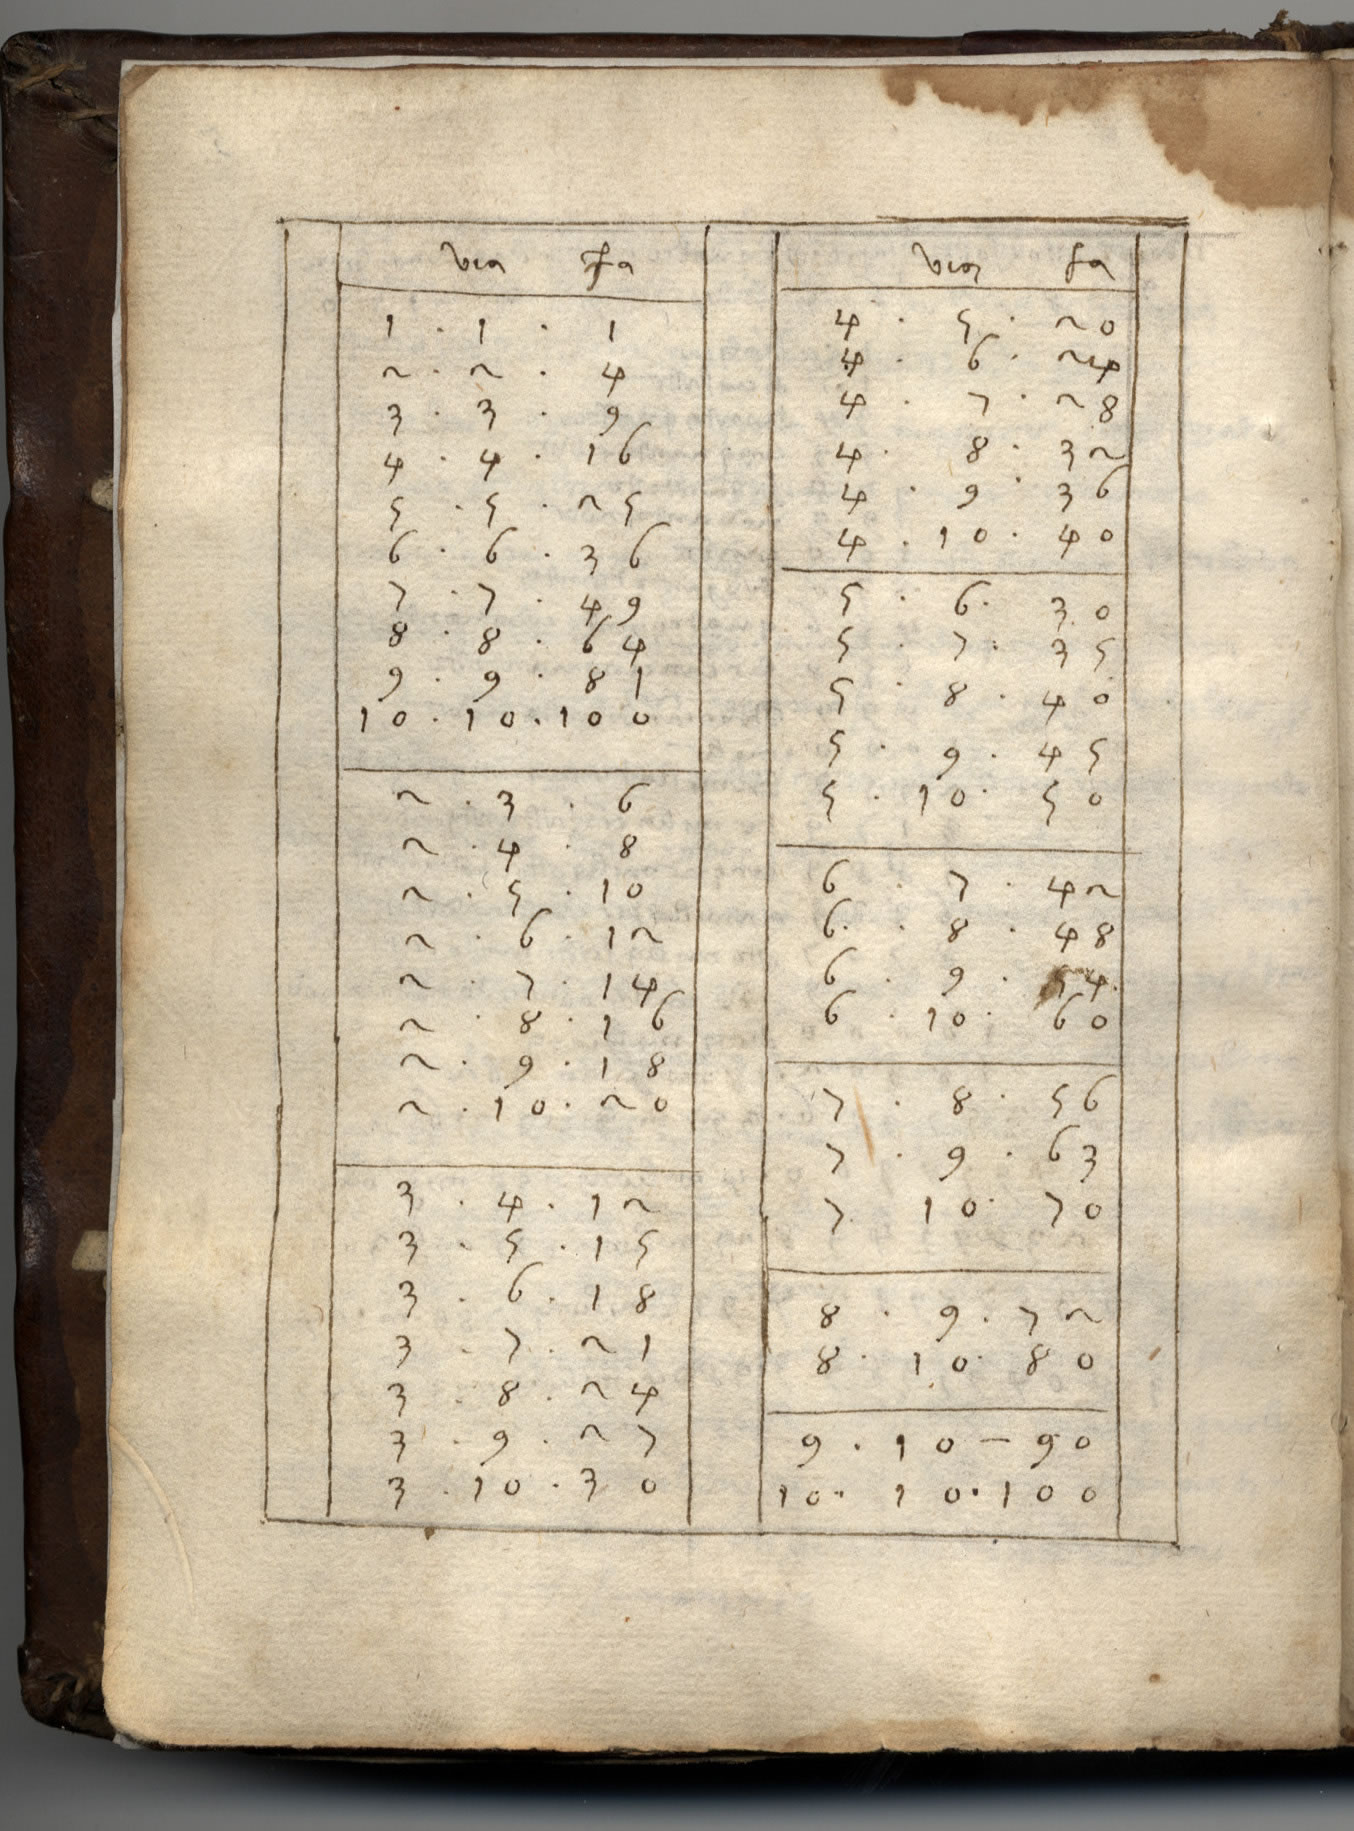 via fa
1 · 1 · 1
2 · 2 · 4
3 · 3 · 9
4 · 4 · 16
5 · 5 · 25
6 · 6 · 36
7 · 7 · 49
8 · 8 · 64
9 · 9 · 81
10 · 10 · 100
2 · 3 · 6
2 · 4 · 8
2 · 5 · 10
2 · 6 · 12
2 · 7 · 14
2 · 8 · 16
2 · 9 · 18
2 · 10 · 20
3 · 4 · 12
3 · 5 · 15
3 · 6 · 18
3 · 7 · 21
3 · 8 · 24
3 · 9 · 27
3 · 10 · 30
via fa
4 · 5 · 20
4 · 6 · 24
4 · 7 · 28
4 · 8 · 32
4 · 9 · 36
4 · 10 · 40
5 · 6 · 30
5 · 7 · 35
5 · 8 · 40
5 · 9 · 45
5 · 10 · 50
6 · 7 · 42
6 · 8 · 48
6 · 9 · 54
6 · 10 · 60
7 · 8 · 56
7 · 9 · 63
7 10 · 70
8 · 9 · 72
8 · 10 · 80
9 · 10 — 90
10 · 10 · 100